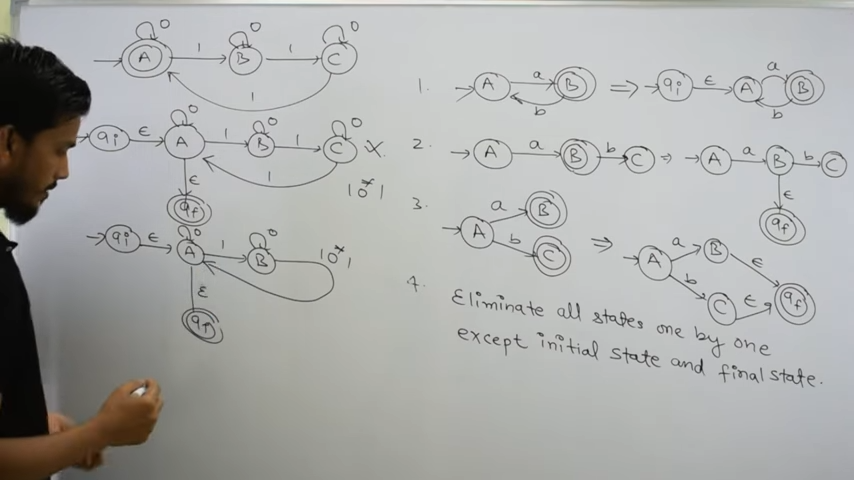 0 0 0
A 1 B 1 C
1
0 0 0
qi ε A 1 B 1 C X
1
ε
10*1
qf
0 0
qi ε A 1 B 10*1
ε
qf
1. A a B b ⇒ qi ε A a B b
2. A a B b C ⇒ A a B b C
ε
qf
3. A a B b C ⇒ A a B ε b C ε qf
4. Eliminate all states one by one
except initial state and final state.